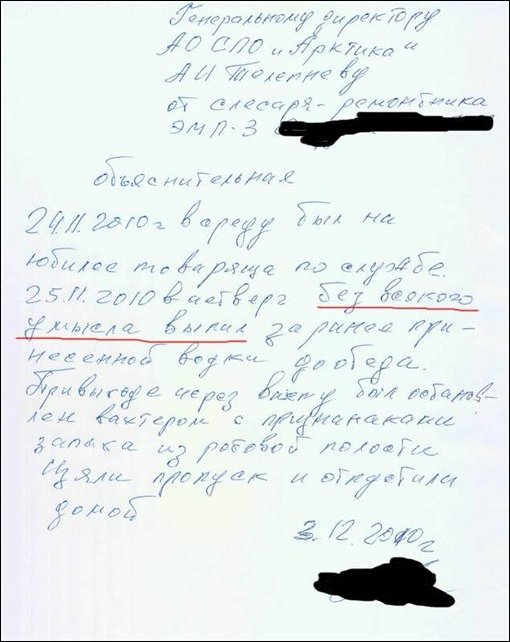 Генеральному директору
АО СПО "Арктика"
А И Телепневу
от слесаря-ремонтника
ЭМП-3
объяснительная
24.11.2010г в среду был на
юбилее товаряща по службе.
25.11.2010 в четверг без всякого
умысла выпил заринее при-
несенной водки до обеда.
При выходе через вахту был останов-
лен вахтером с признаками
запаха из ротовой полости
Изяли пропуск и отпустили
домой
3.12.2010г